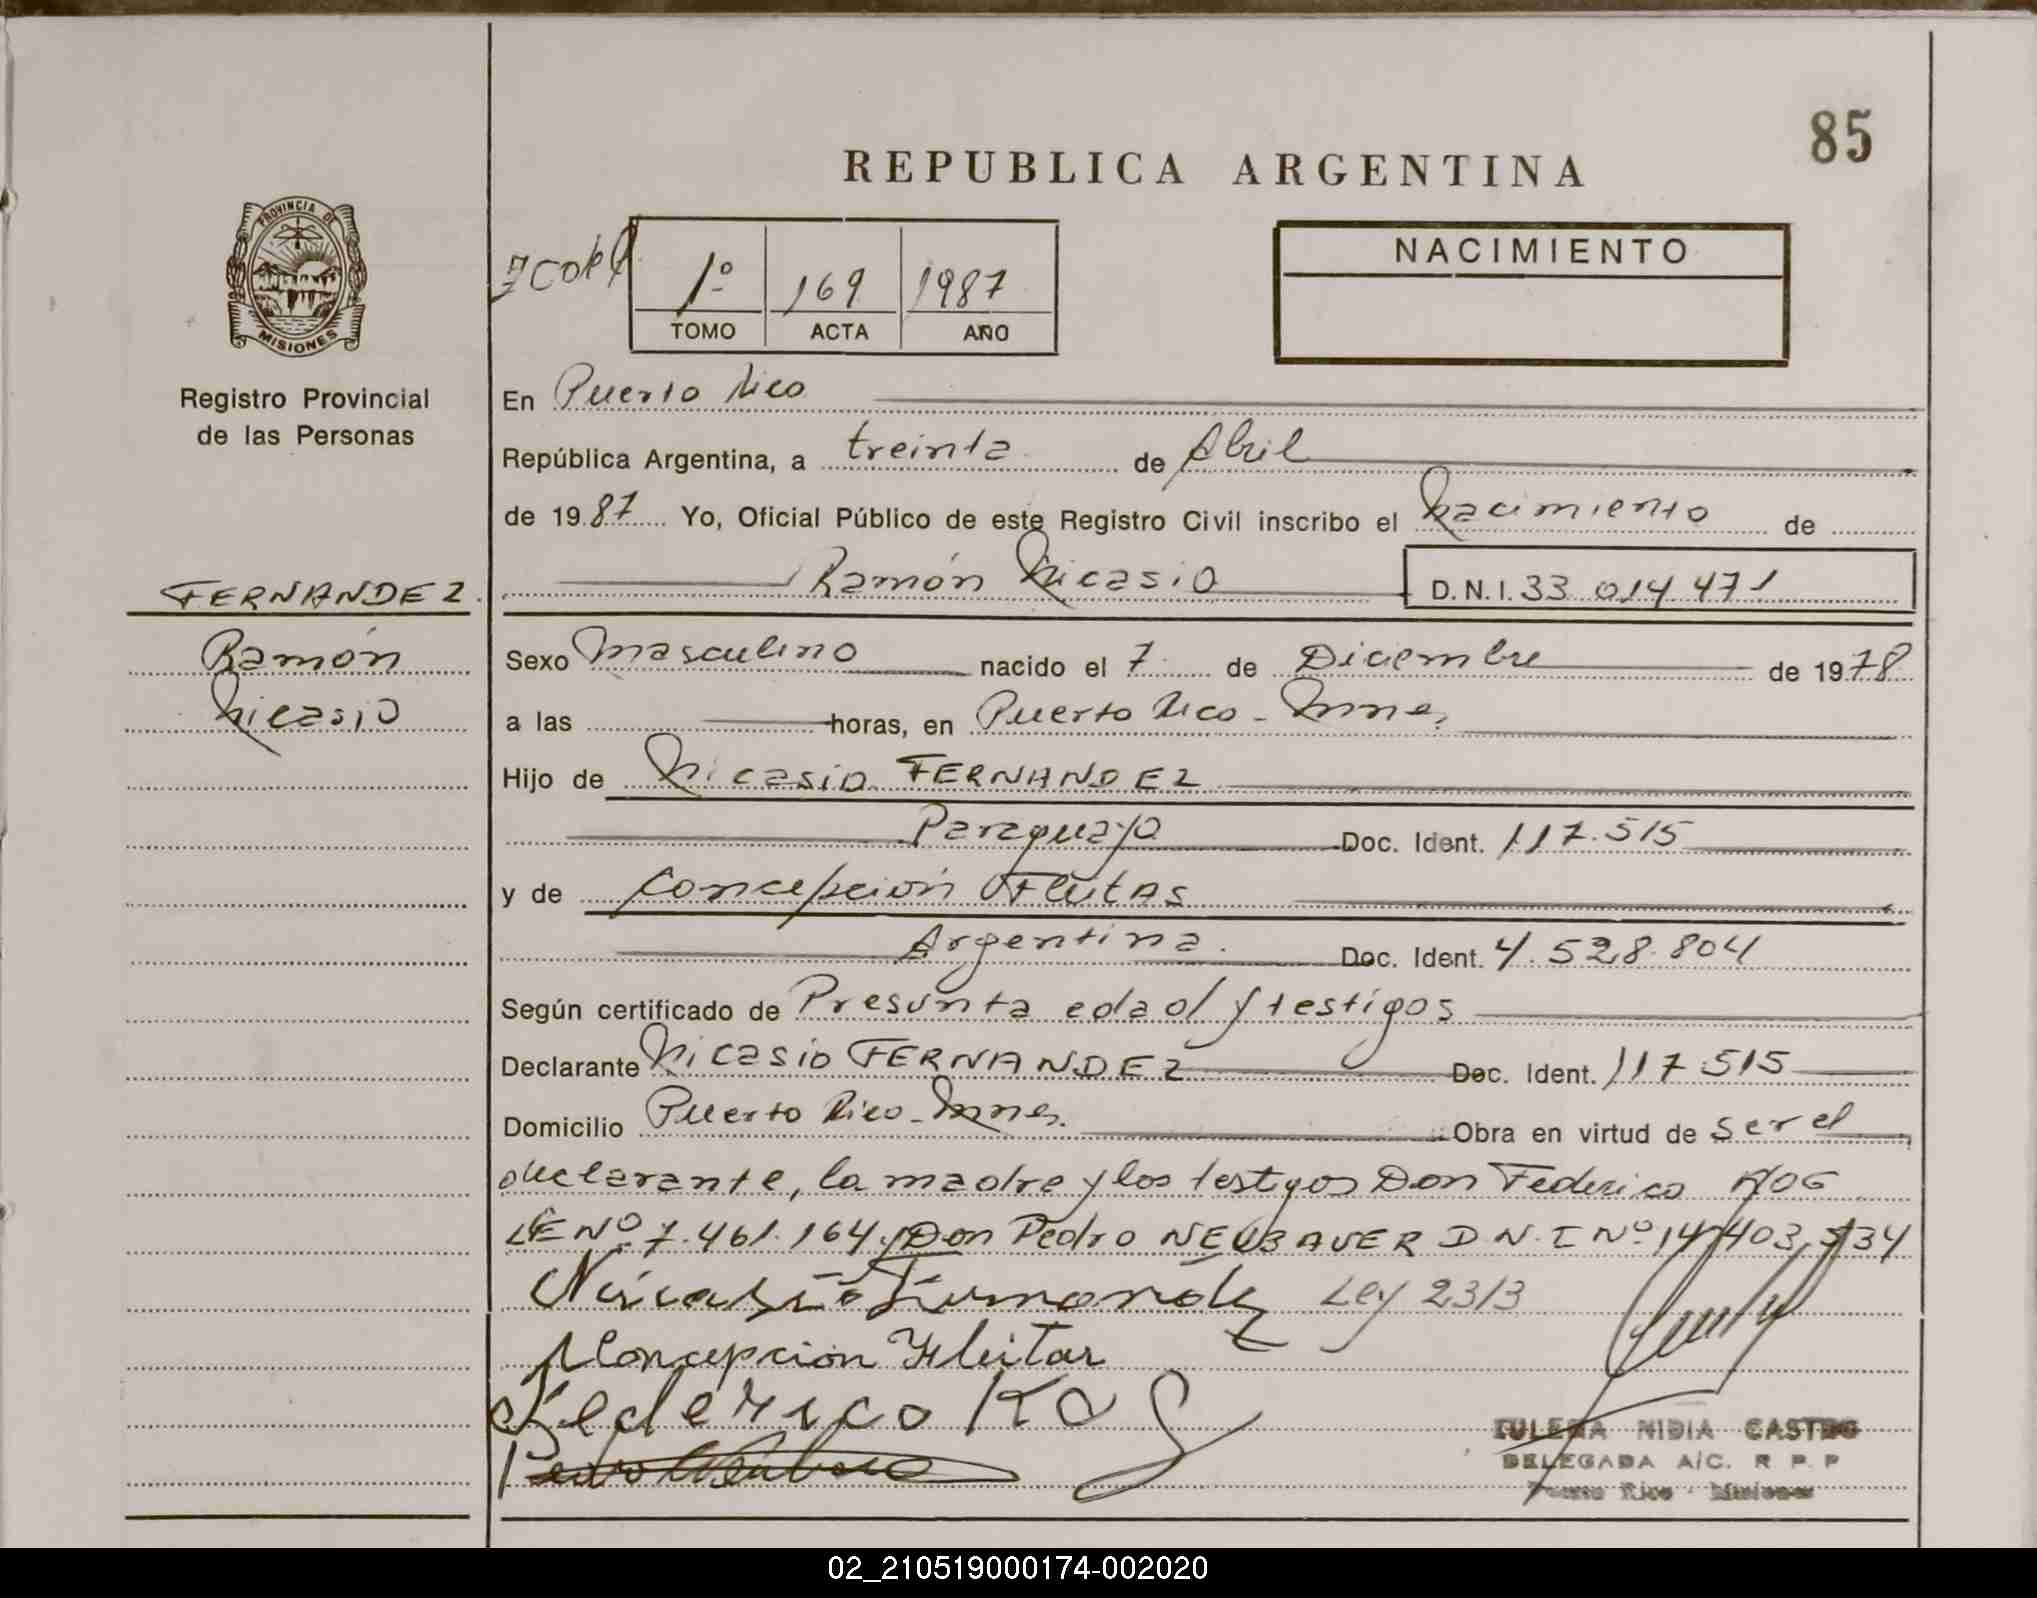 85
REPUBLICA ARGENTINA
PROVINCIA DE
MISIONES
Registro Provincial
de las Personas
1º 169 1987
TOMO ACTA AÑO
NACIMIENTO
En Puerto Rico
República Argentina, a treinta de Abril
de 1987 Yo, Oficial Público de este Registro Civil inscribo el Nacimiento de
Ramón Nicasio D.N.I. 33 014 471
FERNANDEZ
Ramón
Nicasio
Sexo Masculino nacido el 7 de Diciembre de 1978
a las horas, en Puerto Rico - Mnes.
Hijo de Nicasio FERNANDEZ
Paraguayo Doc. Ident. 117.515
y de Concepción FleitAS
Argentina. Doc. Ident. 4.528.804
Según certificado de Presunta edad y testigos
Declarante Nicasio FERNANDEZ Doc. Ident. 117 515
Domicilio Puerto Rico - Mnes. Obra en virtud de ser el
declarante, la madre y los testigos Don Federico
LE Nº 7.461.164 y Don Pedro NEUBAUER D N I Nº 14.403.534
Nicasio Fernandez Ley 23/3
Concepción Fleitas
Federico
Pedro
NIDIA CASTRO
DELEGADA A/C. R P. P
Puerto Rico - Misiones
02_210519000174-002020